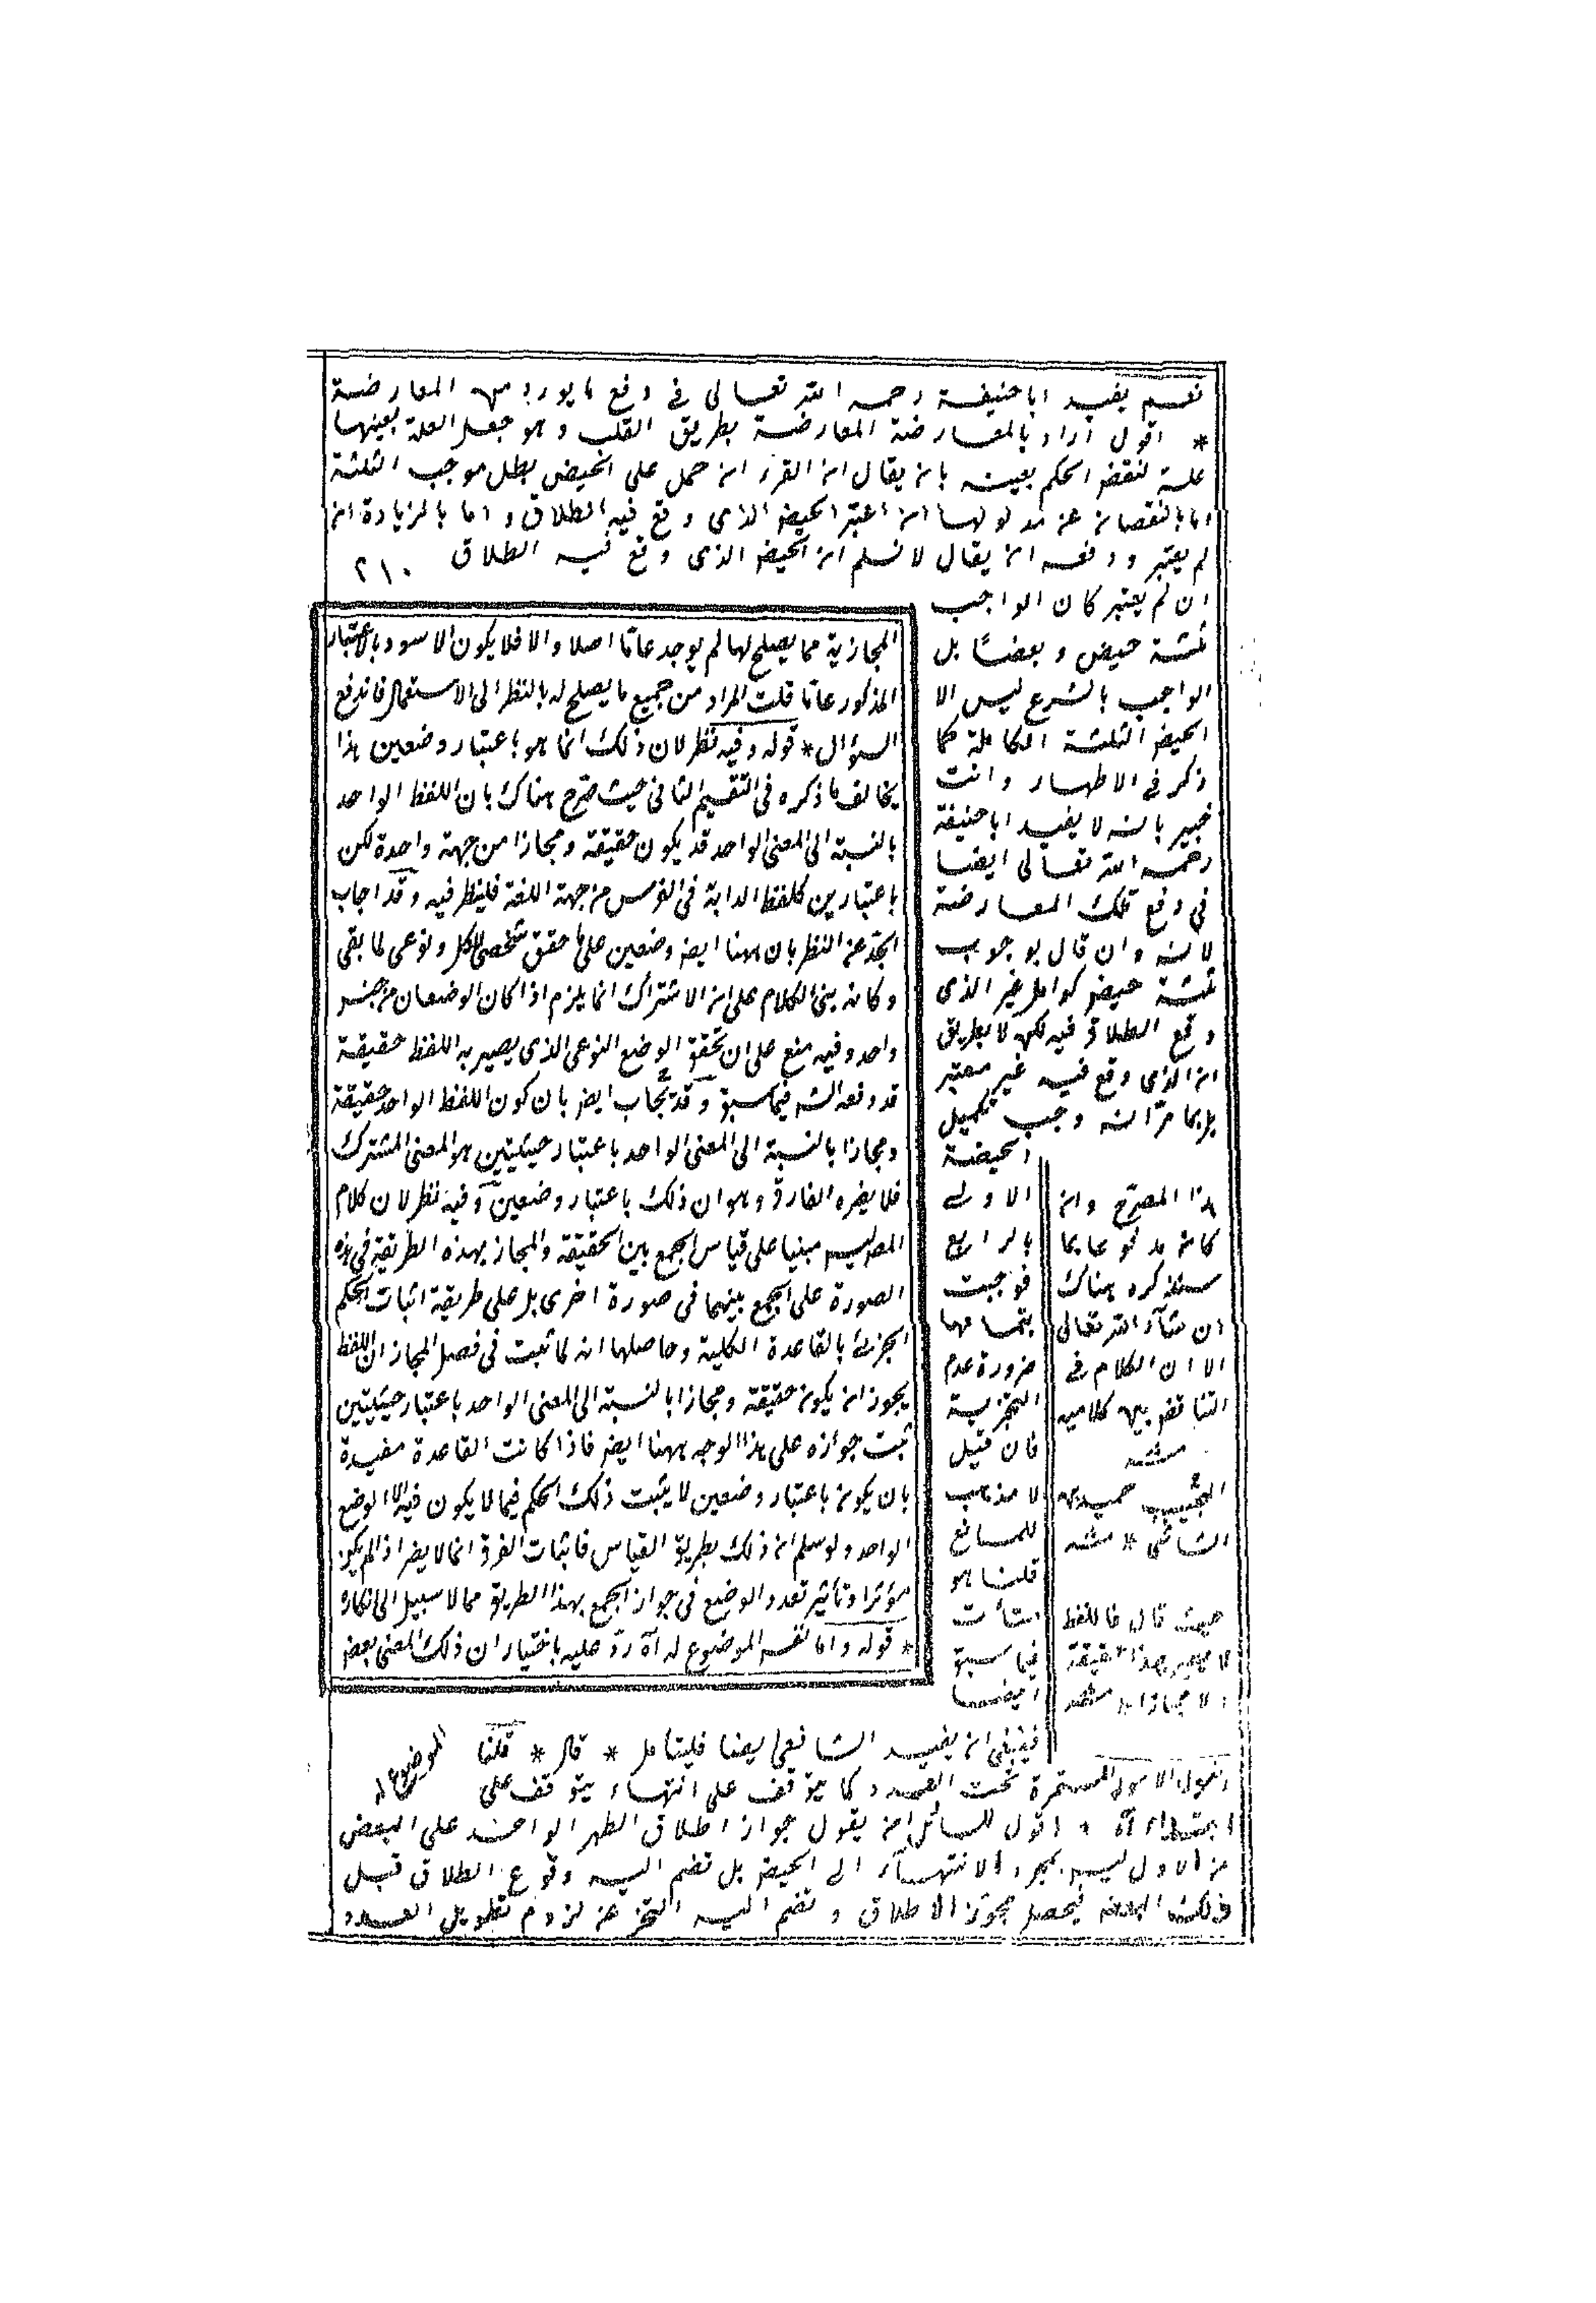 نعم يفيد ابا حنيفة رحمه الله تعالى في دفع ما يورد من المعارضة
* اقول اراد بالمعارضة المعارضة بطريق القلب وهو جعل العلة بعينها
علة لنقض الحكم بعينه بان يقال ان القرء ان حمل على الحيض بطل موجب الثلثة
اما بالنقصان عن مدلولها ان اعتبر الحيض الذى وقع فيه الطلاق واما بالزيادة ان
لم يعتبر ودفعه ان يقال لا نسلم ان الحيض الذى وقع فيه الطلاق
٢١٠
ان لم يعتبر كان الواجب
ثلثة حيض وبعضًا بل
الواجب بالشرع ليس الا
الحيض الثلثة الكاملة كما
ذكر في الاطهار وانت
خبير بانه لا يفيد ابا حنيفة
رحمه الله تعالى ايضا
في دفع تلك المعارضة
لانه وان قال بوجوب
ثلثة حيض كوامل غير الذى
وقع الطلاق فيه لكن لا بطريق
ان الذى وقع فيه غير معتبر
بل بما مرّ انه وجب تكميل
الحيضة
الاولى
بالرابع
فوجبت
بتمامها
ضرورة عدم
التجزية
فان قيل
لا مذهب
للمانع
قلنا هو
فيما سبق
ايضا
فينبغى ان يفيد الشافعى ايضا فليتأمل * قال * قلنا
الامور المستمرة تحت العدد كما يتوقف على انتهاء يتوقف على
ابتداء آه * اقول للسائل ان يقول جواز اطلاق الطهر الواحد على البعض
من الاول ليس بمجرد الانتهاء الى الحيض بل نضم اليه وقوع الطلاق قبل
ذلك البعض فيحصل مجوز الاطلاق ونضم اليه التحرز عن لزوم تطويل العدد
المجازية مما يصلح لها لم يوجد عامّا اصلا والا فلا يكون الاسود بالاعتبار
المذكور عامّا قلت المراد من جميع ما يصلح له بالنظر الى الاستعمال فاندفع
السؤال * قوله وفيه نظر لان ذلك انما هو باعتبار وضعين هذا
يخالف ما ذكره في التقسيم الثانى حيث صرح هناك بان اللفظ الواحد
بالنسبة الى المعنى الواحد قد يكون حقيقة ومجازا من جهة واحدة لكن
باعتبارين كلفظ الدابة في الفرس من جهة اللغة فلينظر فيه وقد اجاب
الجدّ عن النظر بان ههنا ايضا وضعين على ما حقق شخصى للكل ونوعى لما بقى
وكانه بنى الكلام على ان الاشتراك انما يلزم اذا كان الوضعان من جنس
واحد وفيه منع على ان تحقق الوضع النوعى الذى يصير به اللفظ حقيقة
قد دفعه الشه فيما سبق وقد يجاب ايض بان كون اللفظ الواحد حقيقة
ومجازا بالنسبة الى المعنى الواحد باعتبار حيثيتين هو المعنى المشترك
فلا يضره الفارق وهو ان ذلك باعتبار وضعين وفيه نظر لان كلام
المص ليس مبنيا على قياس الجمع بين الحقيقة والمجاز بهذه الطريقة في هذه
الصورة على الجمع بينهما في صورة اخرى بل على طريقة اثبات الحكم
الجزئى بالقاعدة الكلية وحاصلها انه لما ثبت في فصل المجاز ان اللفظ
يجوز ان يكون حقيقة ومجازا بالنسبة الى المعنى الواحد باعتبار حيثيتين
ثبت جوازه على هذا الوجه ههنا ايض فاذا كانت القاعدة مفيدة
بان يكون باعتبار وضعين لا يثبت ذلك الحكم فيما لا يكون فيه الا الوضع
الواحد ولو سلم ان ذلك بطريق القياس فاثبات الفرق انما لا يضر اذا لم يكن
مؤثرا وتأثير تعدد الوضع في جواز الجمع بهذا الطريق مما لا سبيل الى انكاره
* قوله واما نفس الموضوع له آه ردّ عليه باختيار ان ذلك المعنى بعض
الموضوع له
هذا المصرّح وان
كان مدلولا بما
سنذكره هناك
ان شاء الله تعالى
الا ان الكلام في
التناقض بين كلاميه
منه
المجيب حميد
الشاشى * منه
حيث قال فاللفظ
لا يصير بهذا حقيقة
ولا مجازا * منه